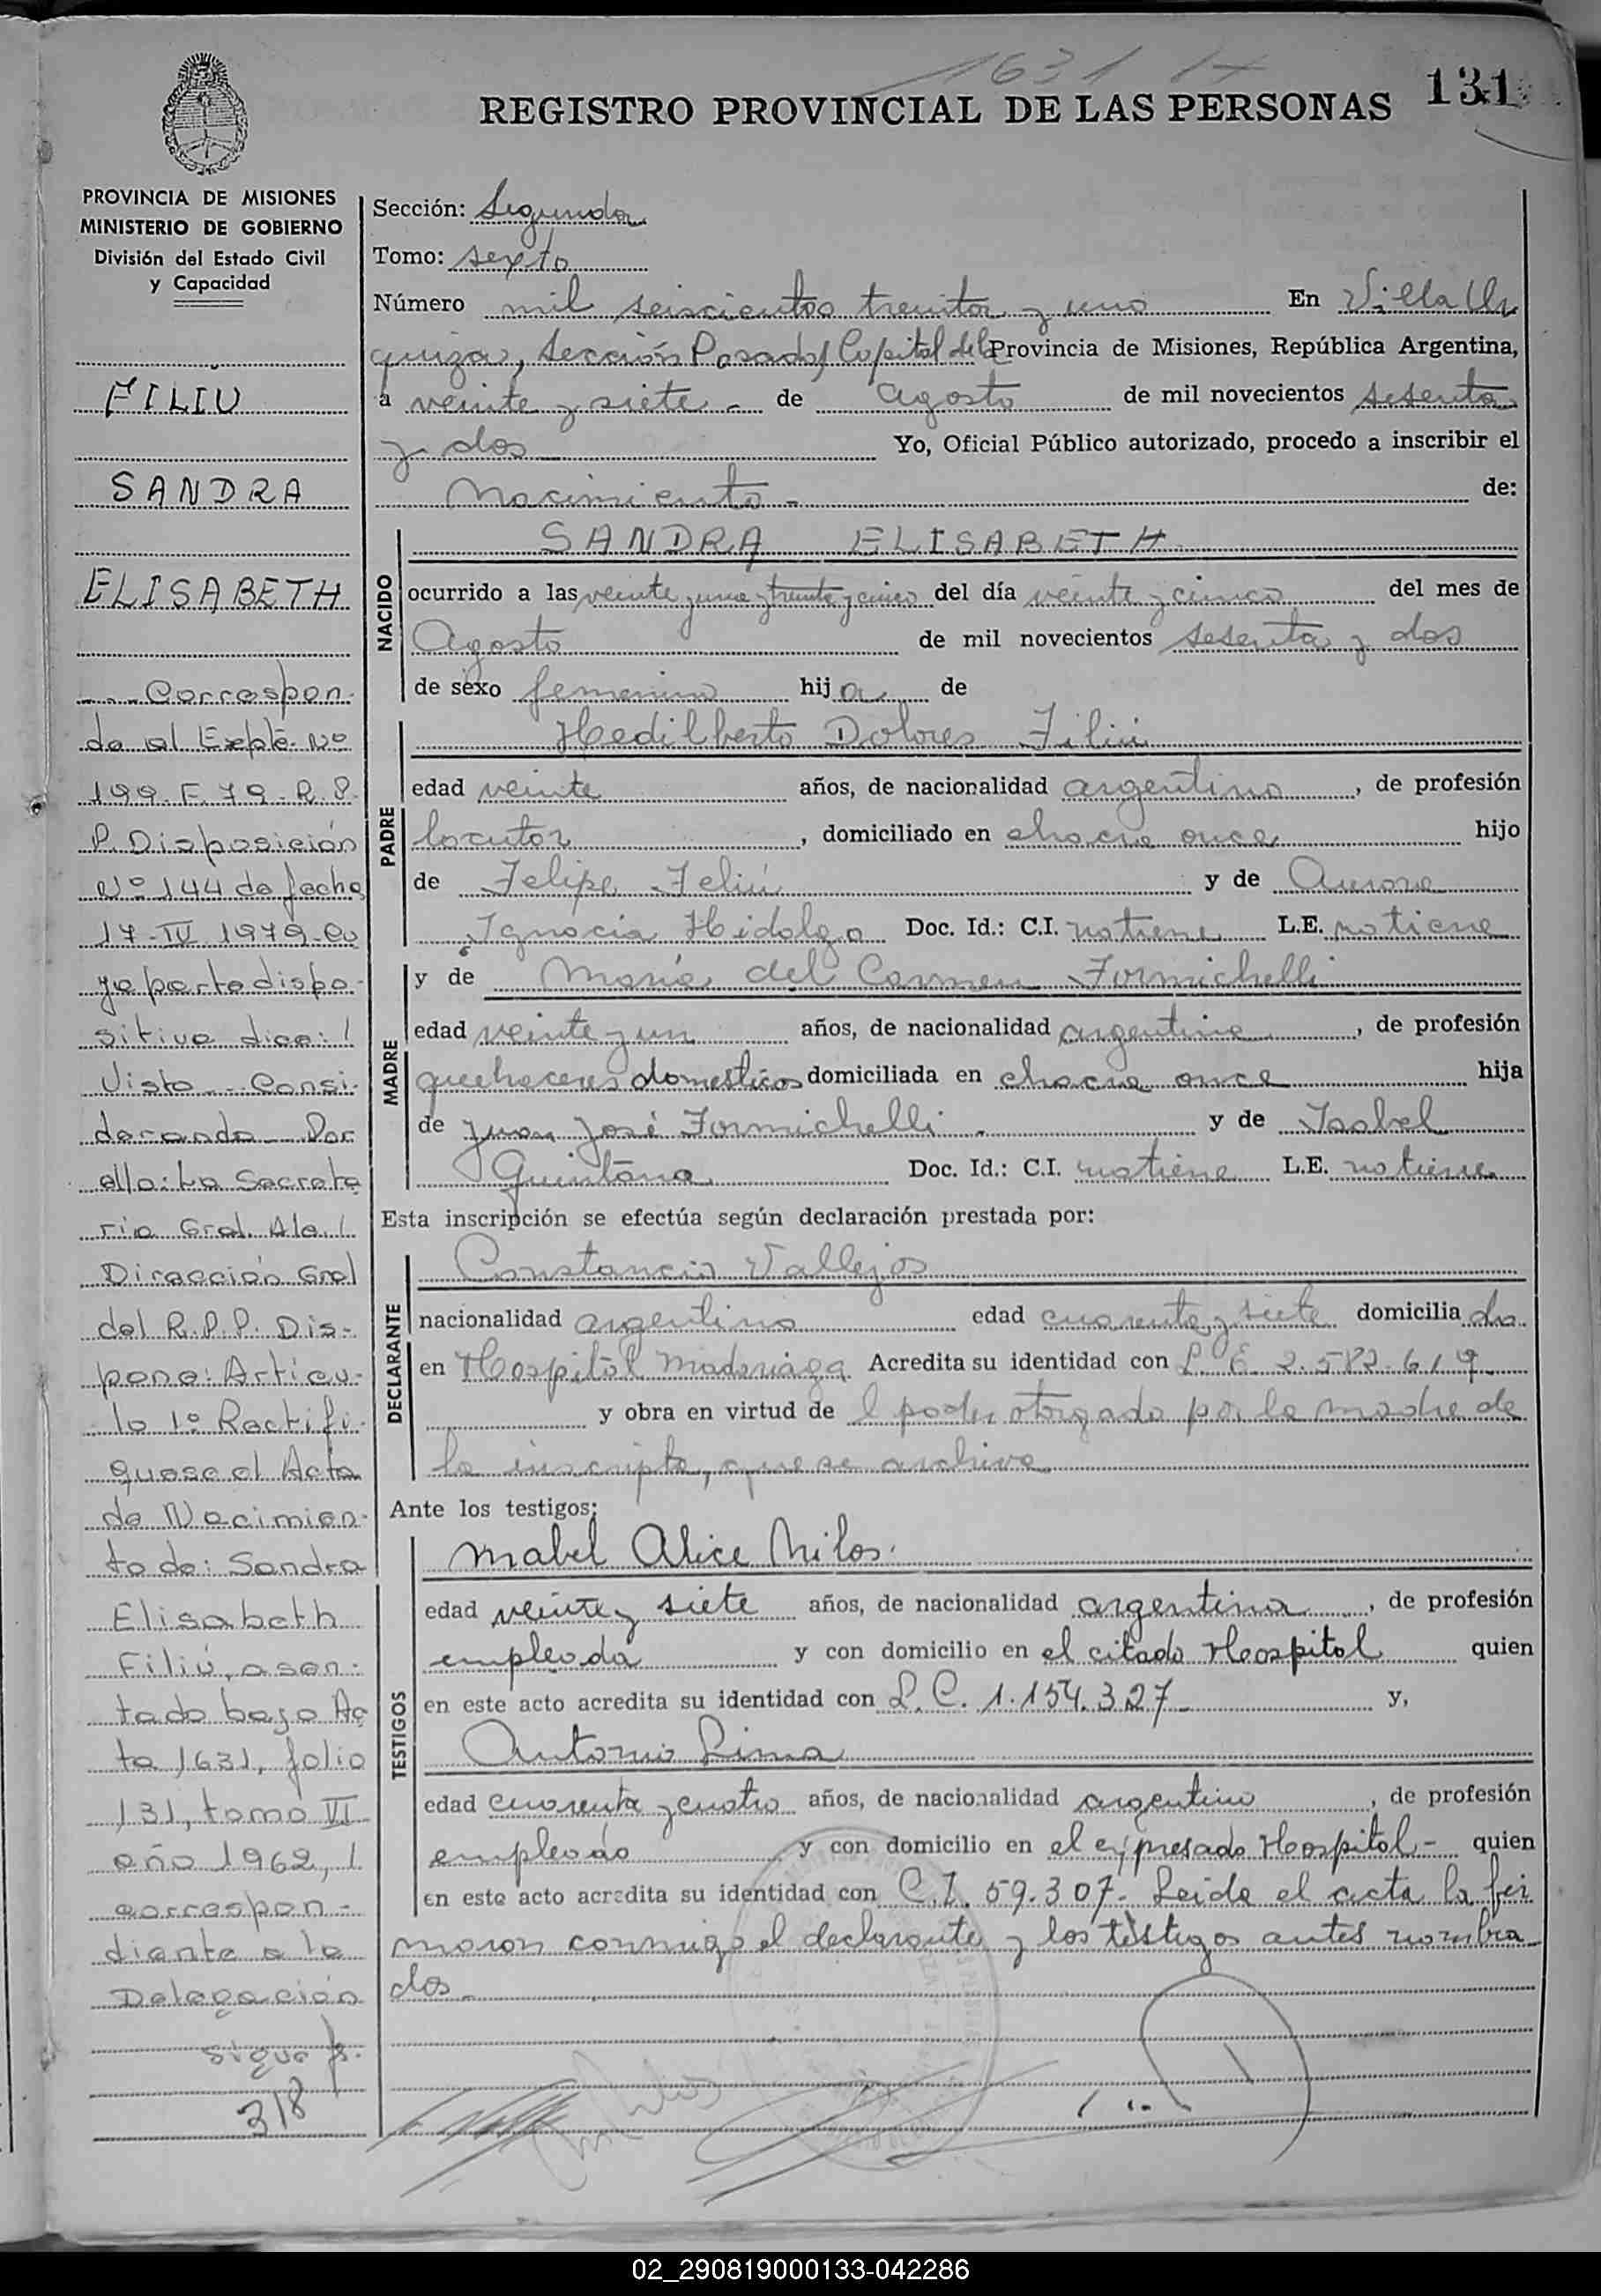 1631
131
REGISTRO PROVINCIAL DE LAS PERSONAS
PROVINCIA DE MISIONES
MINISTERIO DE GOBIERNO
División del Estado Civil
y Capacidad
FILIU
SANDRA
ELISABETH
--- Correspon-
de al Expte. Nº
199.F.79-R.P.
P. Disposición
Nº 144 de fecha
17-IV-1979-Cu
ya parte dispo-
sitiva dice: /
Visto -- Consi-
derando -- Por
ello: La Secreta
ria Gral. A/c. /
Dirección Gral
del R.P.P. Dis-
pone: Artícu-
lo 1º Rectifí-
quese el Acta
de Nacimien-
to de: Sandra
Elisabeth
Filiú, asen-
tado bajo Ac
ta 1631, folio
131, tomo VI
año 1962, /
correspon-
diente a la
Delegación
sigue f.
318
Sección: Segunda
Tomo: sexto
Número mil seiscientos treinta y uno En Villa Ur
quiza, Sección Posadas Capital de la Provincia de Misiones, República Argentina,
a veinte y siete - de agosto de mil novecientos sesenta
y dos Yo, Oficial Público autorizado, procedo a inscribir el
nacimiento - de:
NACIDO
SANDRA ELISABETH
ocurrido a las veinte y una y treinta y cinco del día veinte y cinco del mes de
Agosto de mil novecientos sesenta y dos
de sexo femenino hija de
PADRE
Hedilberto Dolores Filiú
edad veinte años, de nacionalidad argentino, de profesión
locutor, domiciliado en chacra once hijo
de Felipe Feliú y de Aurora
Ignacia Hidalgo Doc. Id.: C.I. no tiene L.E. no tiene
MADRE
y de María del Carmen Formichelli
edad veinte y un años, de nacionalidad argentina, de profesión
quehaceres domesticos domiciliada en chacra once hija
de Juan José Formichelli - y de Isabel
Quintana Doc. Id.: C.I. no tiene L.E. no tiene
Esta inscripción se efectúa según declaración prestada por:
DECLARANTE
Constancio Vallejos
nacionalidad argentino edad cuarenta y siete domicilia do
en Hospital Madariaga Acredita su identidad con L.E. 2.582.619
y obra en virtud de l poder otorgado por la madre de
la inscripta, que se archiva
Ante los testigos:
TESTIGOS
Mabel Alice Milos
edad veinte y siete años, de nacionalidad argentina, de profesión
empleada y con domicilio en el citado Hospital quien
en este acto acredita su identidad con L.C. 1.154.327 - y,
Antonio Lima
edad cuarenta y cuatro años, de nacionalidad argentino, de profesión
empleado y con domicilio en el expresado Hospital - quien
en este acto acredita su identidad con C.I. 59.307- Leida el acta la fir
maron conmigo el declarante y los testigos antes nombra
dos -
02_290819000133-042286